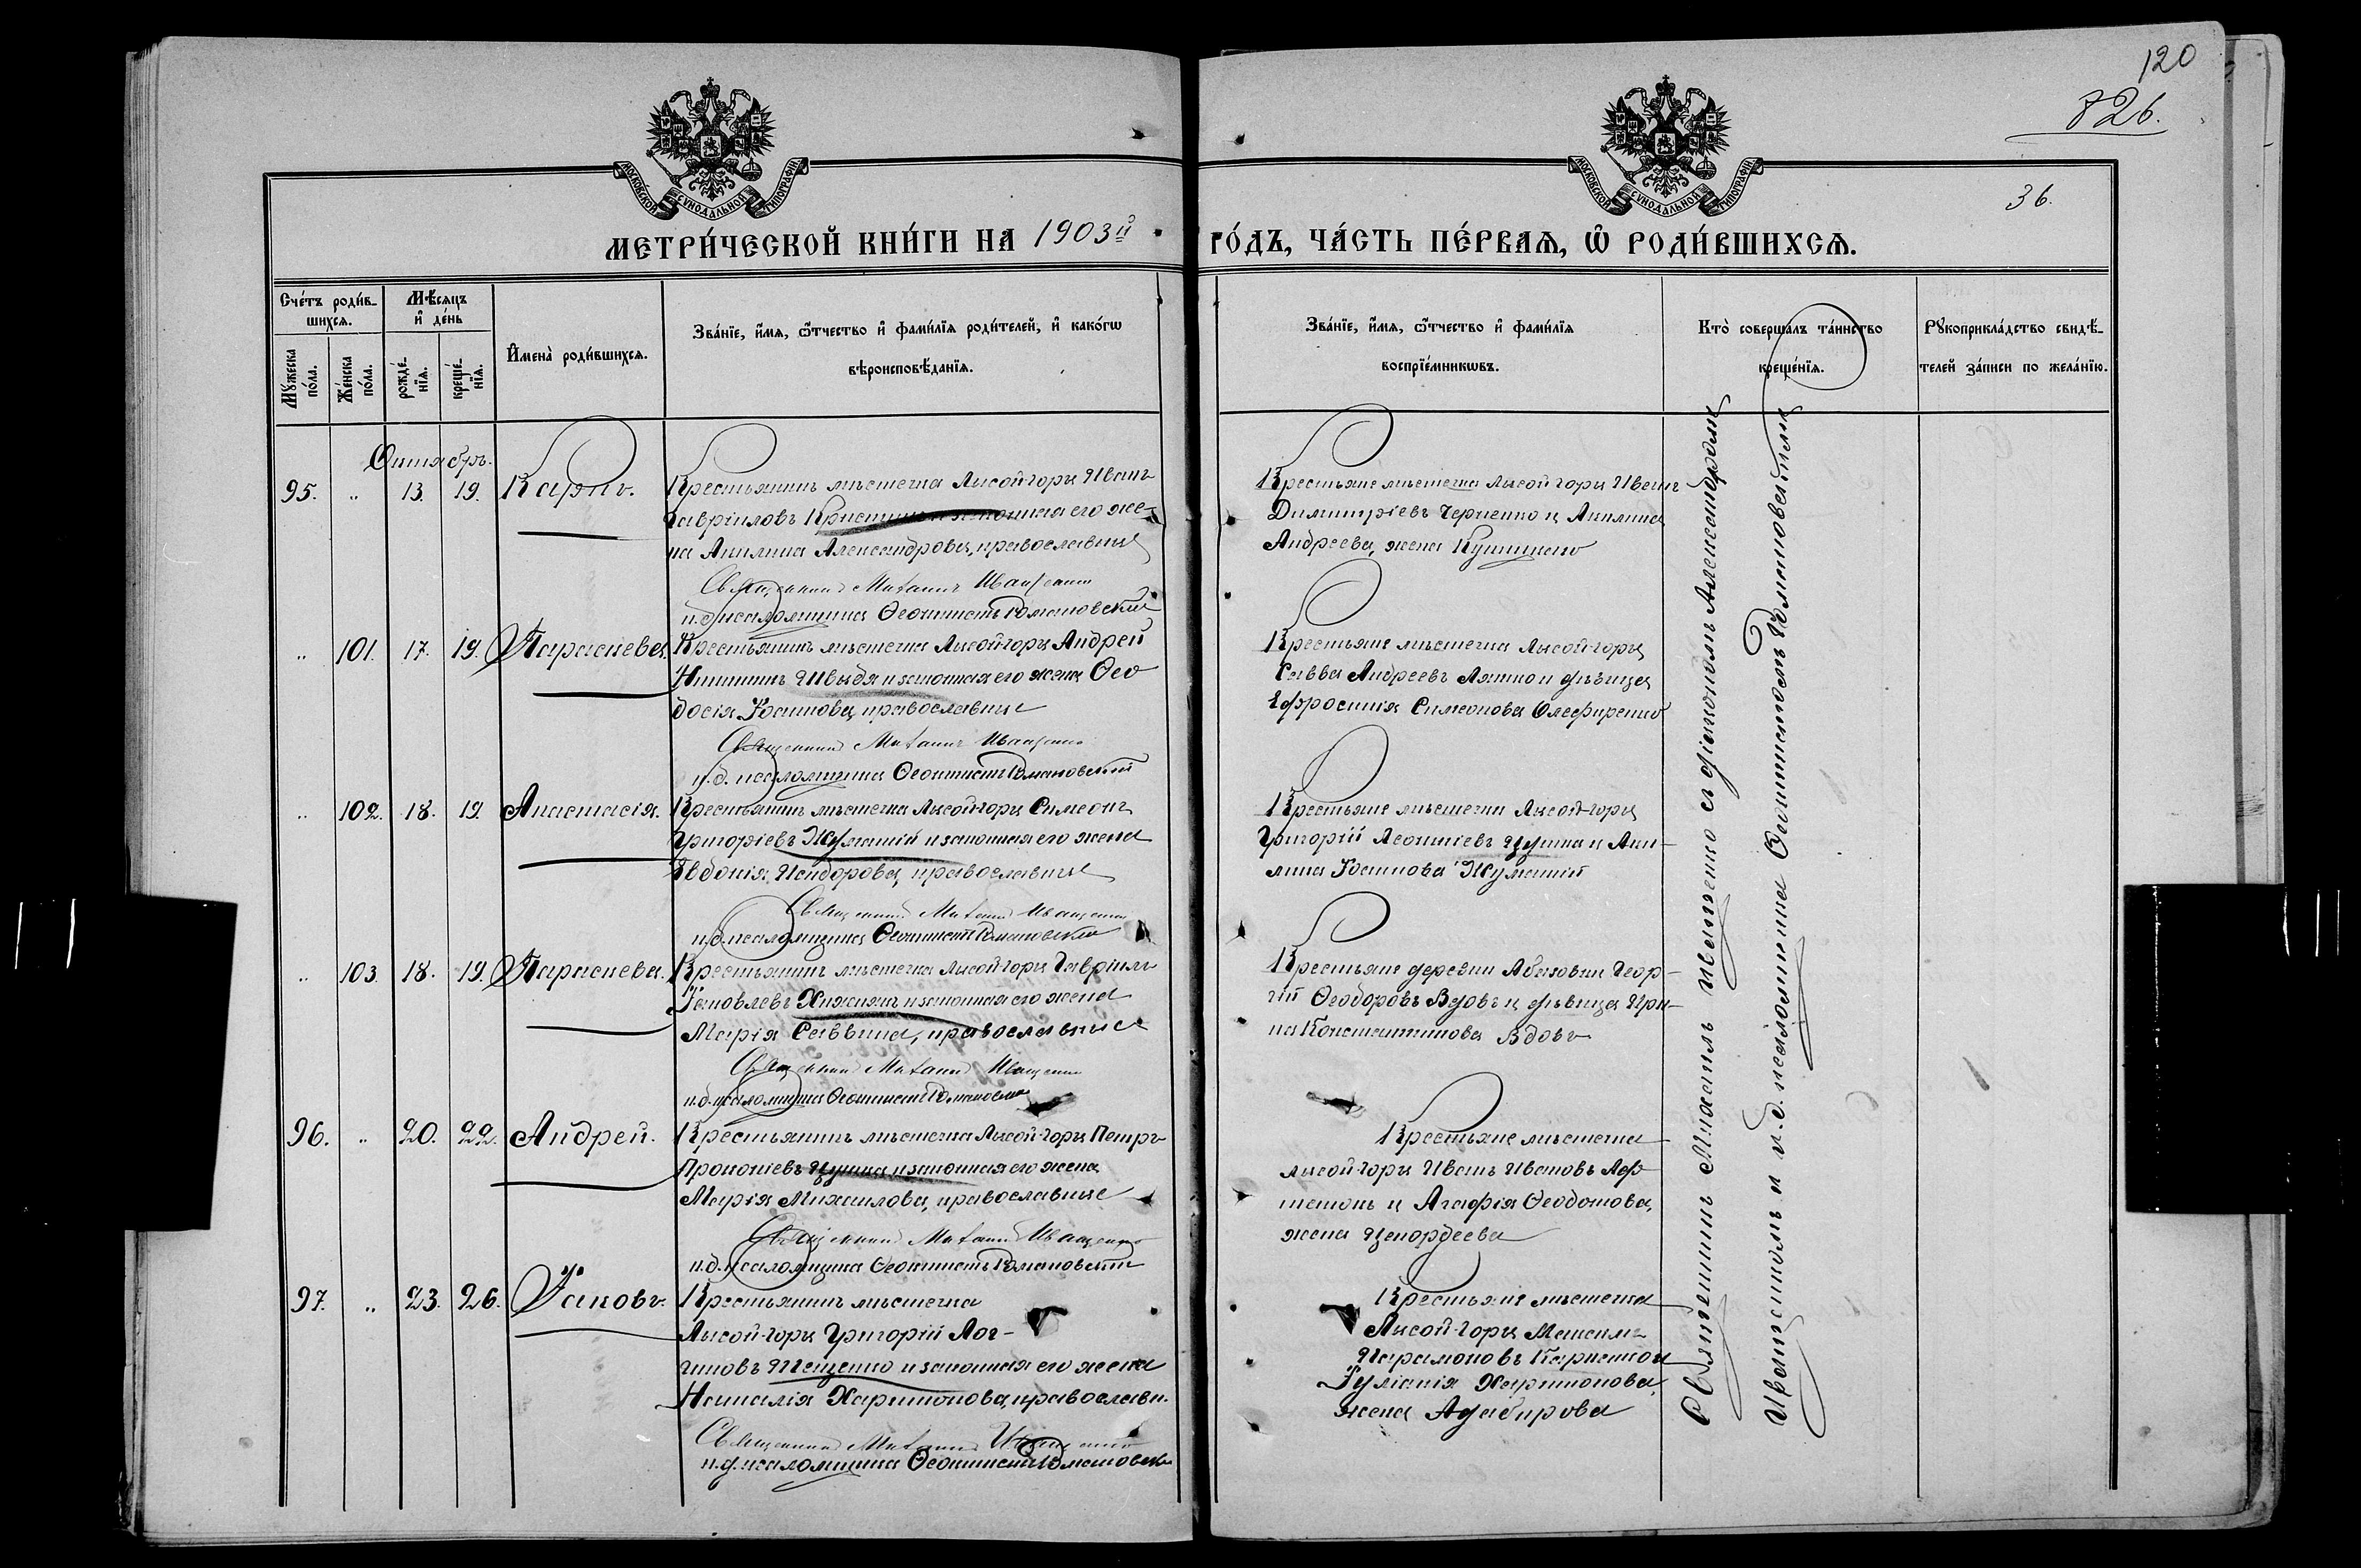 120
826.
36.
МОСКОВСКОЙ СѴНОДАЛЬНОЙ ТИПОГРАФІИ
МОСКОВСКОЙ СѴНОДАЛЬНОЙ ТИПОГРАФІИ
МЕТРИ́ЧЕСКОЙ КНИ́ГИ НА 1903й
ГО́ДЪ, ЧА́СТЬ ПЕ́РВАѦ, Ѿ РОДИ́ВШИХСѦ.
Сче́тъ роди́в-
шихсѧ.
Мꙋ́жеска
по́ла.
Же́нска
по́ла.
Мѣ́сѧцъ
и҆ де́нь
рожде́-
нїѧ.
креще́-
нїѧ.
И҆мена̀ роди́вшихсѧ.
Зва́нїе, и҆́мѧ, ѻ҆́тчество и҆ фами́лїѧ роди́телей, и҆ како́гѡ
вѣроисповѣ́данїѧ.
Зва́нїе, и҆́мѧ, ѻ҆́тчество и҆ фами́лїѧ
воспрїе́мникѡвъ.
Кто̀ соверша́лъ та́инство
креще́нїѧ.
Рꙋкоприкла́дство свидѣ́-
телей за́писи по жела́нїю.
Октябрь.
95. „ 13. 19. Карпъ.
Крестьянинъ мѣстечка Лысой-горы Иванъ
Гавріиловъ и законная его же-
на Акилина Александрова, православные
Священникъ Михаилъ Иващенко
и.д. псаломщика Ѳеоктистъ Романовскій
Крестьяне мѣстечка Лысой-горы Иванъ
Димитріевъ Черненко и Акилина
Андреева, жена
„ 101. 17. 19. Параскева.
Крестьянинъ мѣстечка Лысой-горы Андрей
Никитинъ Швыдя и законная его жена Ѳео
досія Іоаннова, православные
Священникъ Михаилъ Иващенко
и.д. псаломщика Ѳеоктистъ Романовскій
Крестьяне мѣстечка Лысой-горы
Савва Андреевъ Ляшко и дѣвица
Ефросинія Симеонова Олефиренко
„ 102. 18. 19. Анастасія.
Крестьянинъ мѣстечка Лысой-горы Симеонъ
Григоріевъ Жуматій и законная его жена
Евдокія Исидорова, православные
Священникъ Михаилъ Иващенко
и.д. псаломщика Ѳеоктистъ Романовскій
Крестьяне мѣстечка Лысой-горы
Григорій Леонтіевъ Цупка и Аки-
лина Іоаннова Жуматій
„ 103. 18. 19. Параскева.
Крестьянинъ мѣстечка Лысой-горы Гавріилъ
Іаковлевъ Хижнякъ и законная его жена
Марія Саввина, православные
Священникъ Михаилъ Иващенко
и.д. псаломщика Ѳеоктистъ Романовскій
Крестьяне деревни Абазовки Геор-
гій Ѳеодоровъ Вдовъ и дѣвица Ири-
на Константинова Вдовъ
96. „ 20. 22. Андрей.
Крестьянинъ мѣстечка Лысой-горы Петръ
Прокопіевъ Цупка и законная его жена
Марія Михаилова, православные
Священникъ Михаилъ Иващенко
и.д. псаломщика Ѳеоктистъ Романовскій
Крестьяне мѣстечка
Лысой-горы Иванъ Ивановъ Лоф-
и Агафія Ѳеодотова,
жена
97. „ 23. 26. Іаковъ.
Крестьянинъ мѣстечка
Лысой-горы Григорій Лог-
гиновъ Тещенко и законная его жена
Наталія Харитонова, православн.
Священникъ Михаилъ Иващенко
и.д. псаломщика Ѳеоктистъ Романовскій
Крестьяне мѣстечка
Лысой-горы Максимъ
Парамоновъ и
Іуліанія Харитонова,
жена
Священникъ Михаилъ Иващенко съ діакономъ Александромъ
и и.д. псаломщика Ѳеоктистомъ Романовскимъ